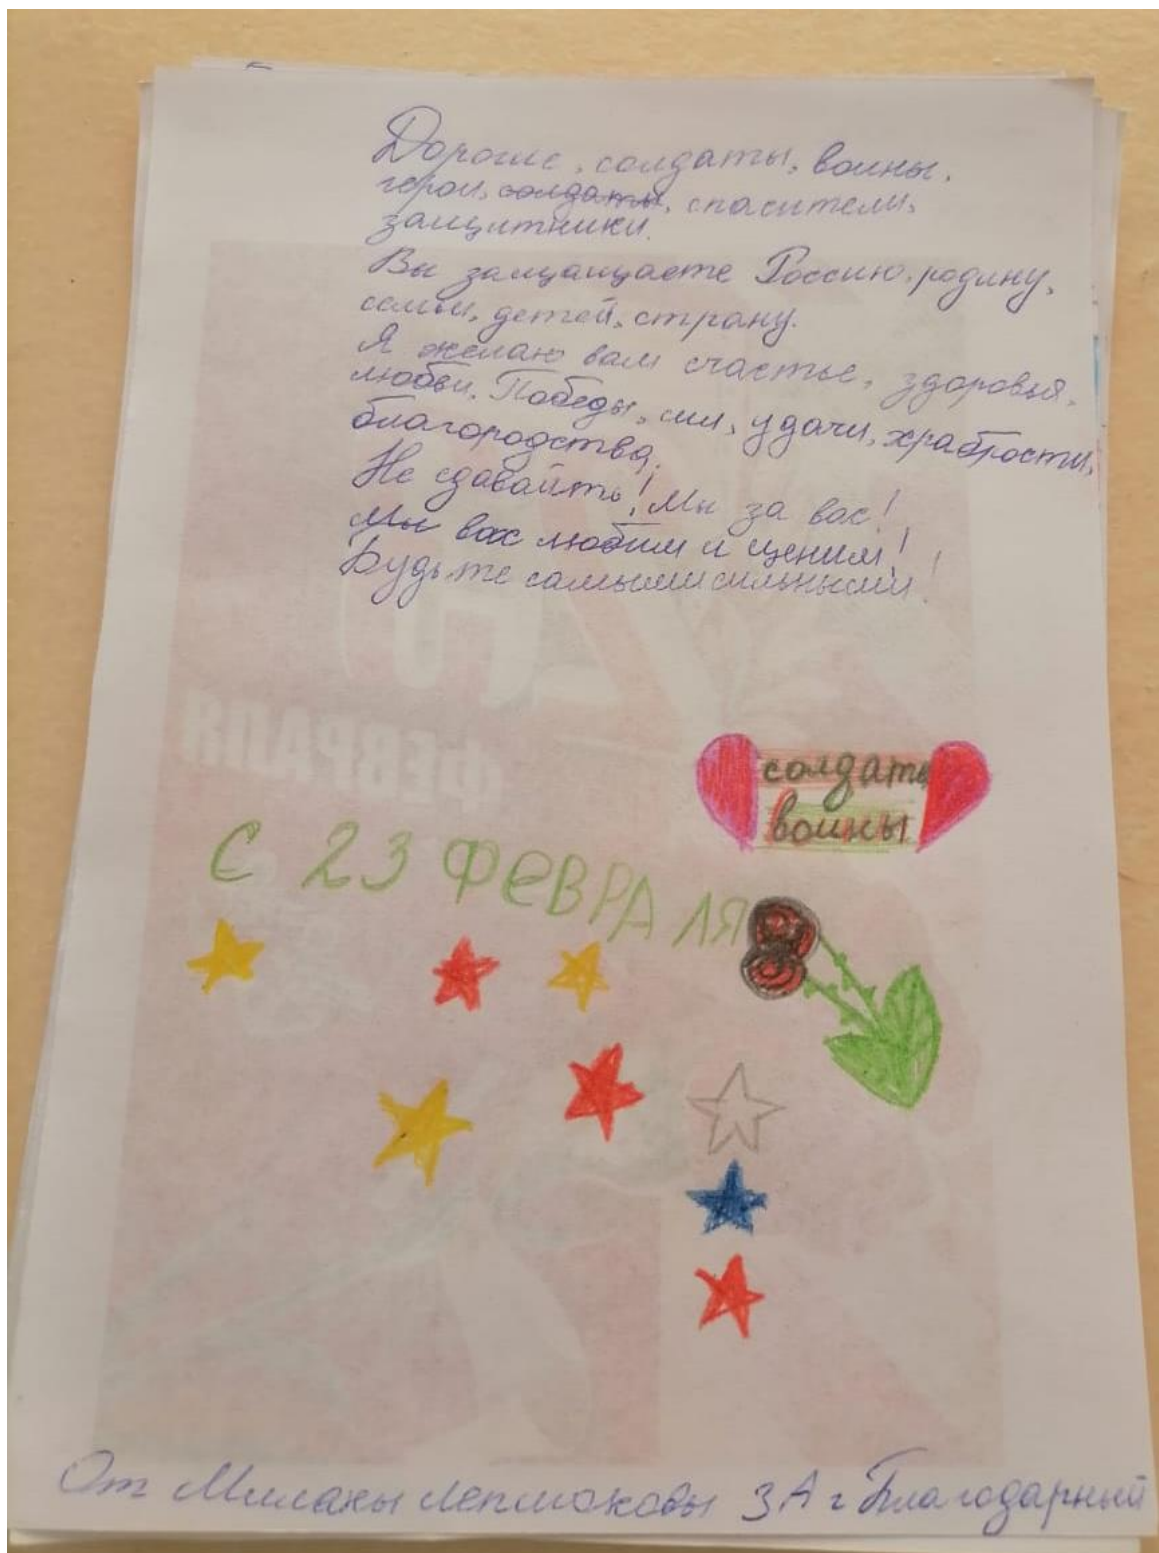 Дорогие, солдаты, воины,
герои, солдаты, спасители,
защитники.
Вы защащаете Россию, родину,
семьи, детей, страну.
Я желаю вам счастье, здоровья,
любви, Победы, сил, удачи, храбрости,
благородства.
Не сдавайть! Мы за вас!
Мы вас любим и ценим!
Будьте самыми сильными!
солдаты
воины
С 23 ФЕВРАЛЯ
ФЕВРАЛЯ
От Миланы 3А г Благодарный